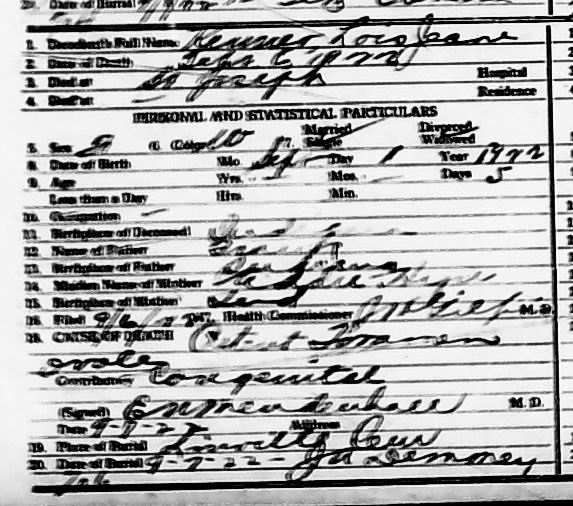 20. Date of Burial
1. Decedent's Full Name Kenner, Lois Jeane
2. Date of Death Sept 6 1922
3. Died at St Joseph Hospital
4. Died at — Residence
PERSONAL AND STATISTICAL PARTICULARS
5. Sex F 6. Color W 7. Married Single Divorced Widowed
8. Date of Birth Mo. Sep Day 1 Year 1922
9. Age Yrs. — Mos. — Days 5
Less than a Day Hrs. Min.
10. Occupation —
11. Birthplace of Deceased Indiana
12. Name of Father
13. Birthplace of Father Indiana
14. Maiden Name of Mother
15. Birthplace of Mother Ind
16. Filed 9/6/22 17. Health Commissioner M. D.
18. CAUSE OF DEATH Patent Foramen
ovale
Contributory Congenital
(Signed) E N Mendenhall M. D.
Date 9-7-22 Address
19. Place of Burial Linville Cem
20. Date of Burial 9-7-22 — J W Demoney